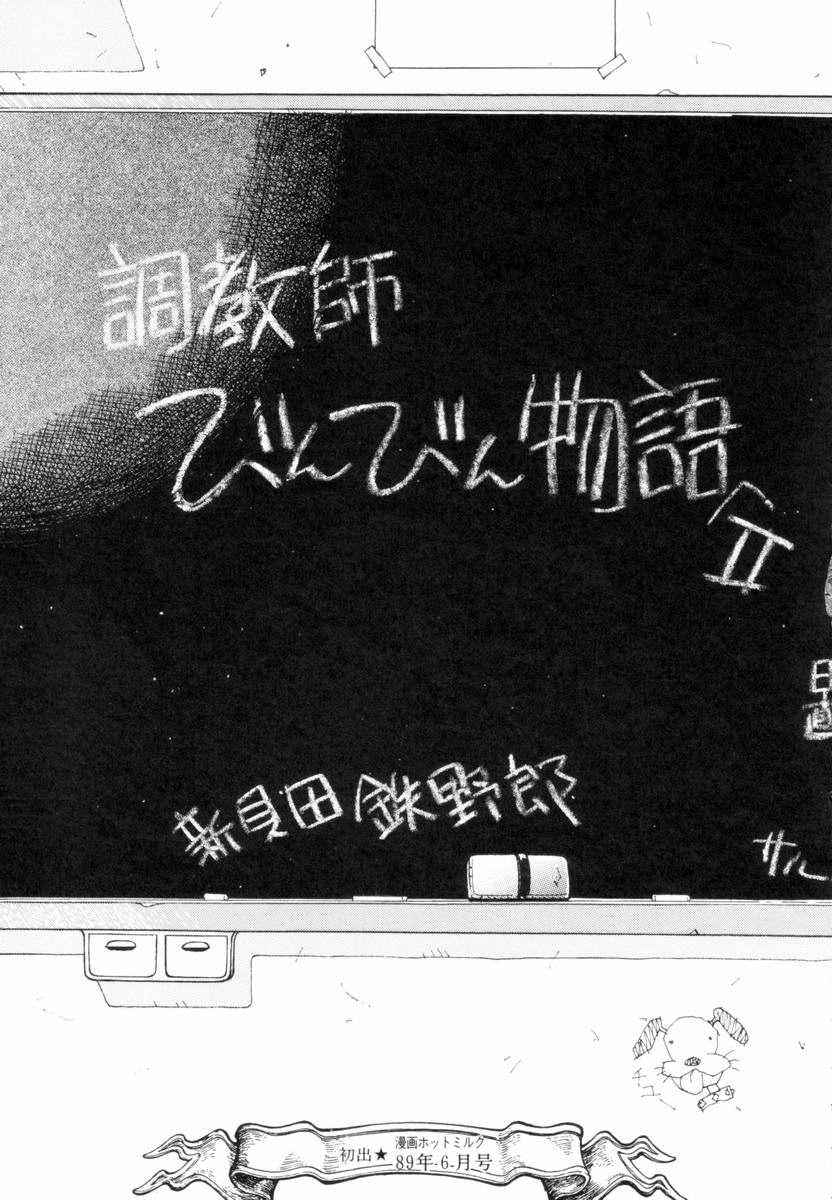 調教師
びんびん物語
II
日直
新貝田鉄野郎
サル
チュー
漫画ホットミルク
初出★89年-6-月号